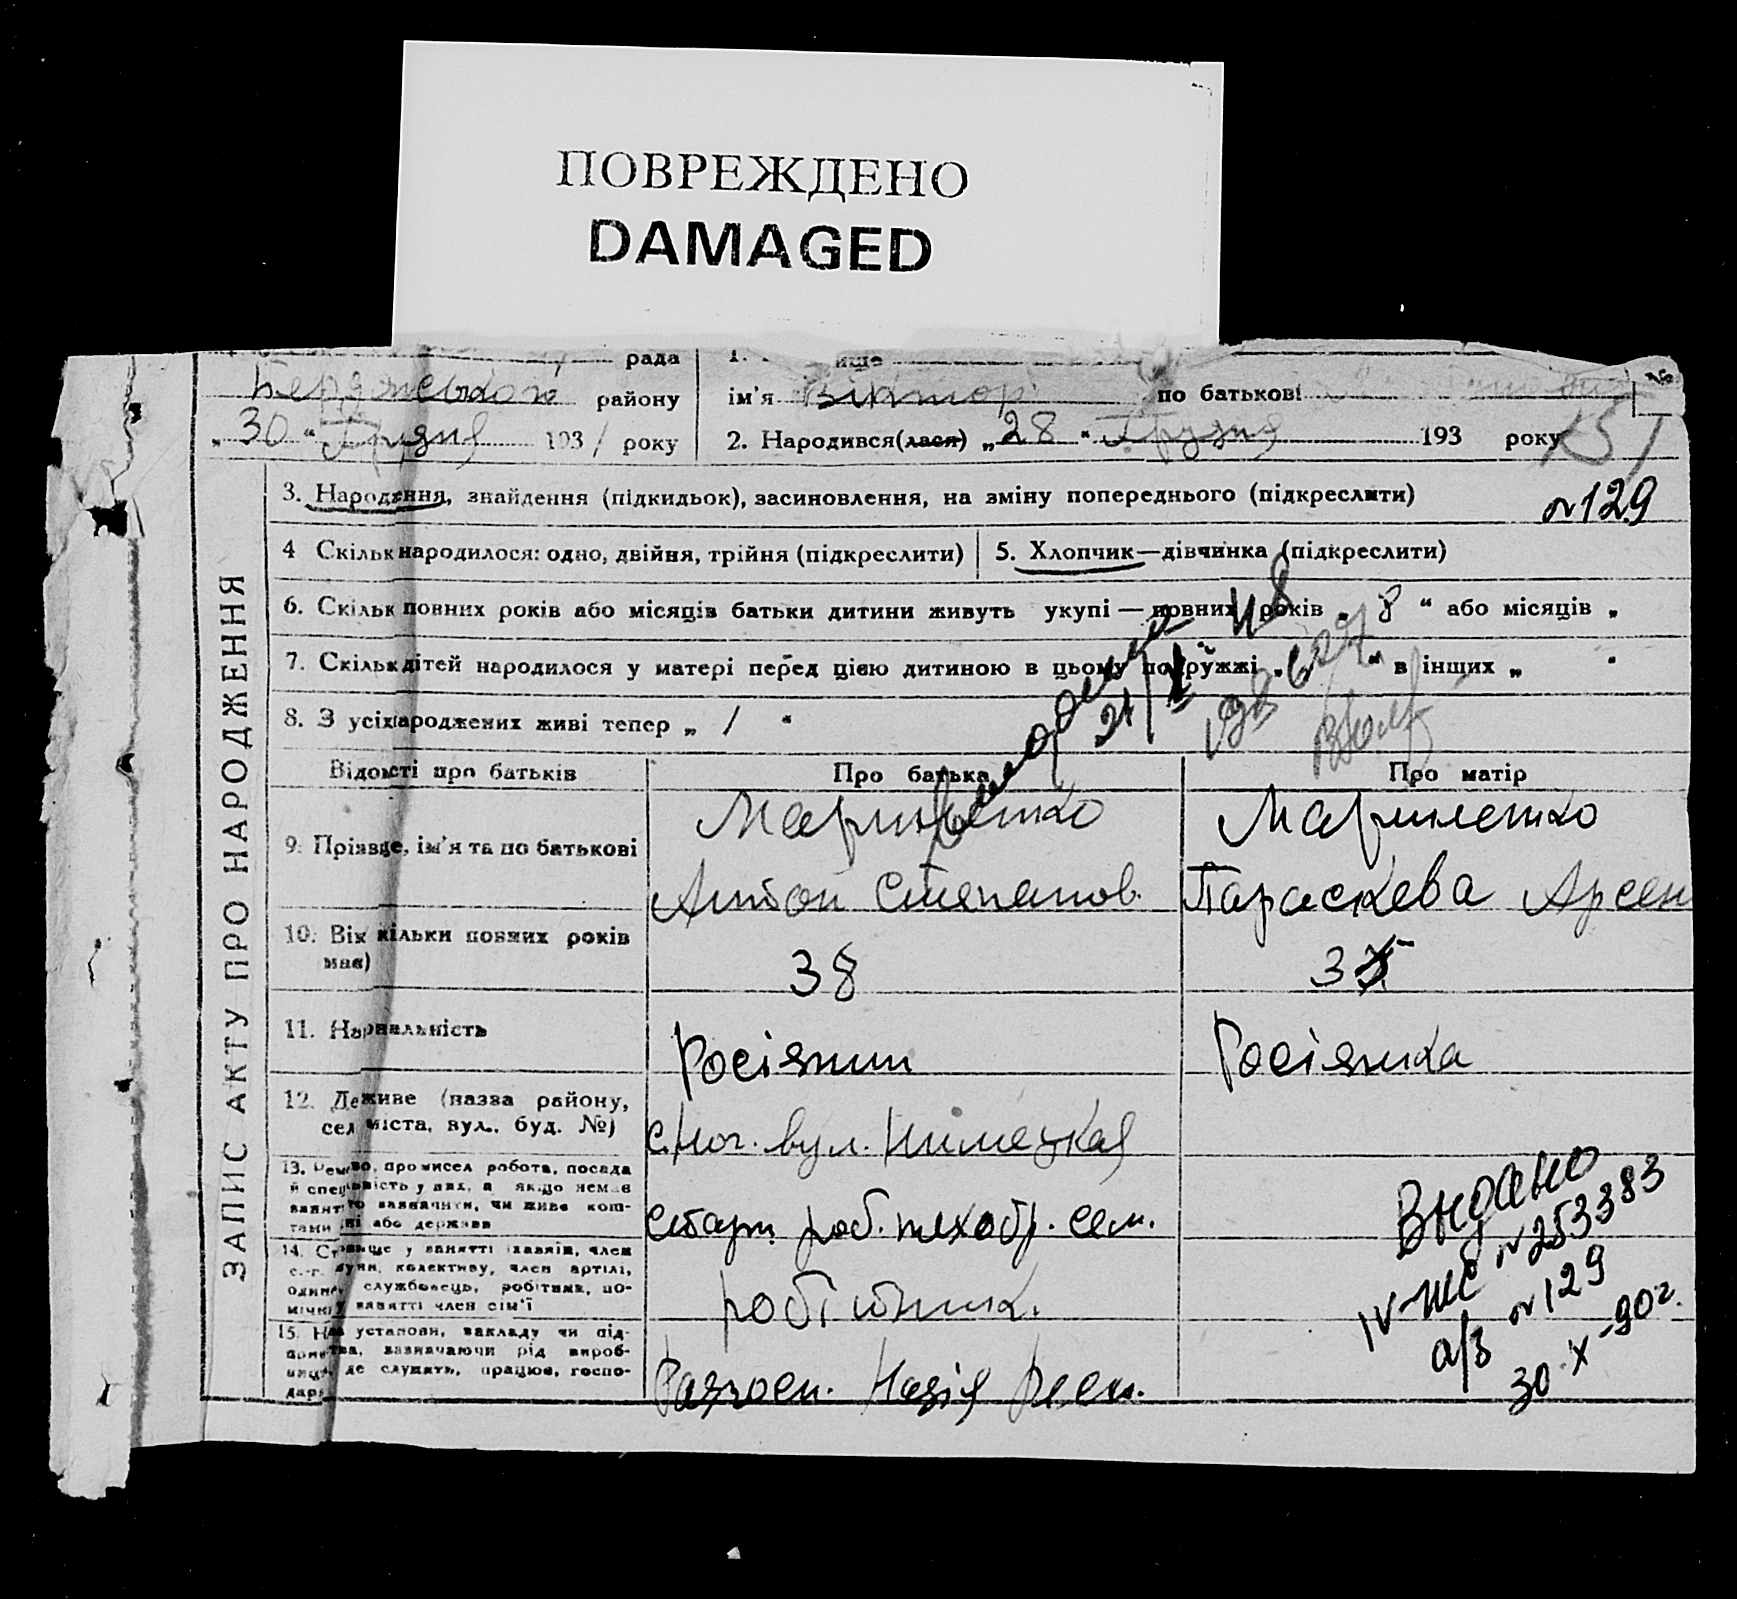 ПОВРЕЖДЕНО
DAMAGED
рада
району
„ 30 “ Грудня 193 1 року
1.
ім'я Віктор по батькові
2. Народився(лася) „ 28 “ Грудня 193 року
151
№129
ЗАПИС АКТУ ПРО НАРОДЖЕННЯ
3. Народження, знайдення (підкидьок), засиновлення, на зміну попереднього (підкреслити)
4 Скільк народилося: одно, двійня, трійня (підкреслити)
5. Хлопчик—дівчинка (підкреслити)
6. Скільк повних років або місяців батьки дитини живуть укупі — повних років „ 8 “ або місяців „
7. Скільк дітей народилося у матері перед цією дитиною в цьому подружжі „ “ в інших „ “
8. З усіх народжених живі тепер „ 1 “
Відомості про батьків
Про батька
Про матір
9. Прізвще, ім'я та по батькові
Мариненко
Антон Степанов.
Мариненко
Параскева Арсен
10. Вік кільки повних років має)
38
35
11. Національність
Росіянин
Росіянка
12. Де живе (назва району, села міста, вул., буд. №)
вул. Німецкая
13. Ремесво, промисел робота, посада
й спеціяльність у них, а якщо немає
заняття то зазначити, чи живе кош-
тами її або держави
роб.
14. Становище у занятті хазяїн, член
с.-г. комуни, колективу, член артілі,
одинак, службовець, робітник, по-
мічний у занятті член сім'ї
робітник.
15. Назва установи, закладу чи під-
приємства, зазначаючи рід вироб-
ництва де служить, працює, госпо-
дарює
Видано
IV-ЖС № 253383
а/з № 129
30 X -90г.